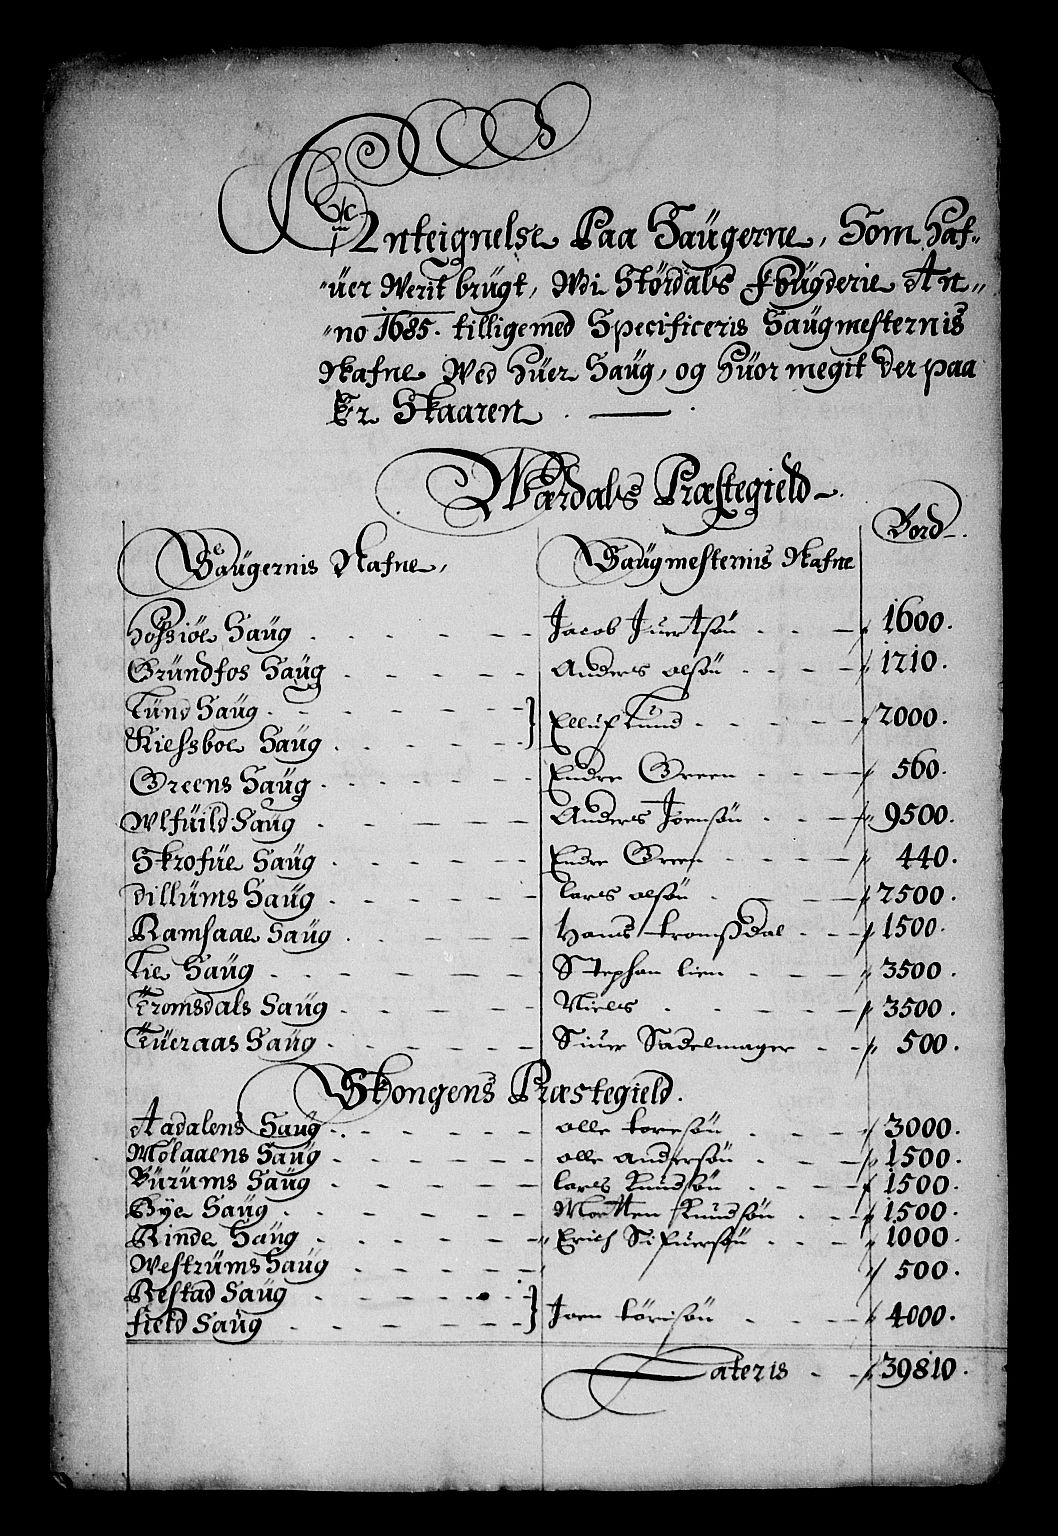 Anteignelse Paa Saugerne, Som Haf-
-uer Werit brugt, Wdi Stördals Fougderie An-
-no 1685. tilligemed Specificeris Saugmesternis
Nafne Wed huer Saug, og huor megit der paa
Er Skaaren
Wærdals Præstegield
Saugernis Nafne, Saugmesternis Nafne Bord
Hossiöe Saug Jacob Juertsøn 1600.
Grundfos Saug Anders olsøn 1210.
Lund Saug
Elluf Lund 2000.
Kiessboe Saug
Greens Saug Endre Green 560.
Wlfuild Saug Anders Joensøn 9500.
Skrofue Saug Endre Green 440.
Dillums Saug Lars olsøn 2500.
Ramsaae Saug Hans tromssdal 1500.
Lie Saug Stephan lien 3500.
Tromsdals Saug Niels 3500.
Tueraas Saug Siuer Sadelmager 500.
Skongens Præstegield.
Aadalens Saug olle toresøn 3000.
Mölaaens Saug olle andersøn 1500.
Burums Saug lars knudsøn 1500.
Bye Saug Morten knudsøn 1500.
Rinde Saug Erich Sifuersøn 1000.
Westrums Saug " 500.
Restad Saug
Joen törrisøn 4000.
field Saug
Lateris 39810.